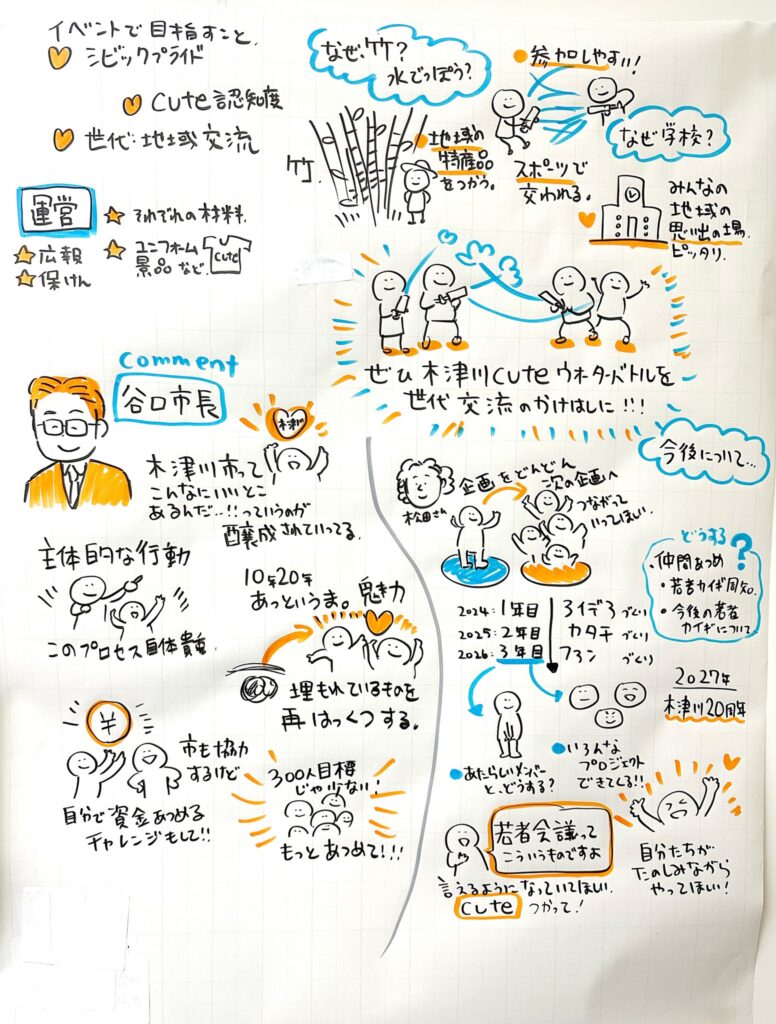 イベントで目指すこと。
シビックプライド
cute認知度
世代・地域交流
運営
それぞれの材料
広報
保けん
ユニフォーム
景品など
cute
なぜ、竹?
水でっぽう?
参加しやすい!
竹
地域の
特産品
をつかう。
スポーツで
交われる。
なぜ学校?
みんなの
地域の
思い出の場。
ピッタリ。
ぜひ木津川cuteウォーターバトルを
世代交流のかけはしに!!!
comment
谷口市長
木津川
木津川市って
こんなにいいとこ
あるんだ…!!っていうのが
醸成されていってる。
主体的な行動
このプロセス自体貴重。
10年20年
あっというま。魅力
埋もれているものを
再はっくつする。
¥
市も協力
するけど
自分で資金あつめる
チャレンジもして!!
300人目標
じゃ少ない!
もっとあつめて!!!
今後について…
松田さん
企画をどんどん
次の企画へ
つながって
いってほしい。
どうする?
仲間あつめ
・若者カイギ周知。
・今後の若者
カイギについて
2024:1年目
2025:2年目
2026:3年目
づくり
カタチづくり
ファンづくり
2027年
木津川20周年
あたらしいメンバー
と、どうする?
いろんな
プロジェクト
できてくる!!
若者会議って
こういうものですよ
言えるようになっていてほしい。
cute つかって!
自分たちが
たのしみながら
やってほしい!